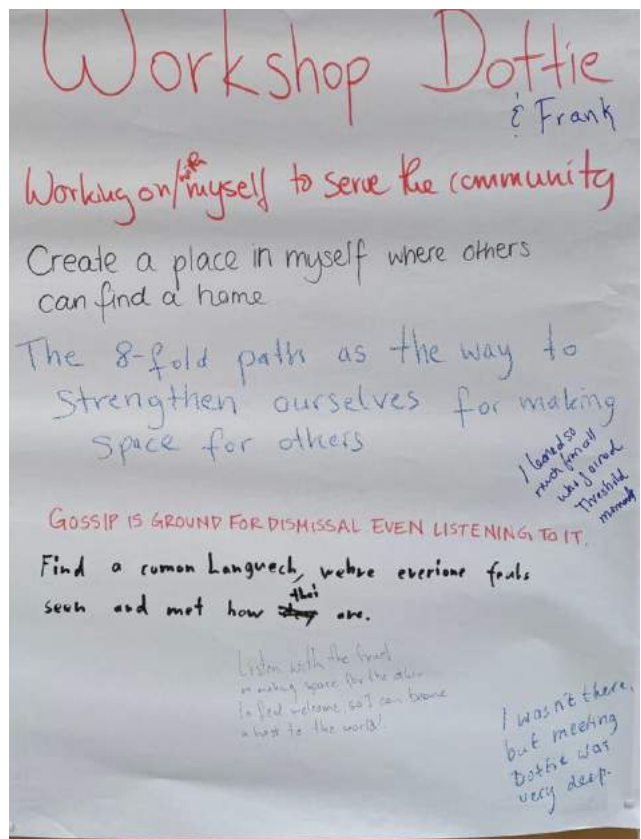 Workshop Dottie
& Frank
Working on/with myself to serve the community
Create a place in myself where others
can find a home
The 8-fold path as the way to
strengthen ourselves for making
space for others
I learned so
much from all
who joined
Threshold
moment
GOSSIP IS GROUND FOR DISMISSAL EVEN LISTENING TO IT.
Find a comon Languech, webre everione feals
seen and met how thei are.
Listen with the
making space for the other
to feel welcome, so I can become
a host to the world!
I wasn't there,
but meeting
Dottie was
very deep.